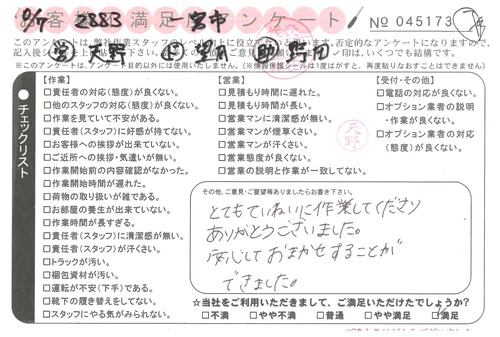 お客様満足アンケート
8/7 2883 一宮市
No 045173
このアンケートは、弊社作業スタッフのレベル向上に役立
否定的なアンケートになりますので、
※このアンケートは、アンケート目的以外には使用いたしません。(※情報保護シールは1度はがすと、再度貼りなおすことはできません)
チェックリスト
【作業】
□責任者の対応(態度)が良くない。
□他のスタッフの対応(態度)が良くない。
□作業を見ていて不安がある。
□責任者(スタッフ)に好感が持てない。
□お客様への挨拶が出来ていない。
□ご近所への挨拶・気遣いが無い。
□作業開始前の内容確認がなかった。
□作業開始時間が遅れた。
□荷物の取り扱いが雑である。
□お部屋の養生が出来ていない。
□作業時間が長すぎる。
□責任者(スタッフ)に清潔感が無い。
□責任者(スタッフ)が汗くさい。
□トラックが汚い。
□梱包資材が汚い。
□運転が不安(下手)である。
□靴下の履き替えをしてない。
□スタッフにやる気がみられない。
【営業】
□見積もり時間に遅れた。
□見積もり時間が長い。
□営業マンに清潔感が無い。
□営業マンが煙草くさい。
□営業マンが汗くさい。
□営業態度が良くない。
□営業の説明と作業が一致してない。
天野
【受付・その他】
□電話の対応が良くない。
□オプション業者の説明
・作業が良くない。
□オプション業者の対応
(態度)が良くない。
その他、ご意見・ご要望等ありましたらお書き下さい。
とてもていねいに作業してくださり
ありがとうございました。
安心しておまかせすることが
できました。
☆当社をご利用いただきまして、ご満足いただけたでしょうか?
□不満 □やや不満 □普通 □やや満足 □満足